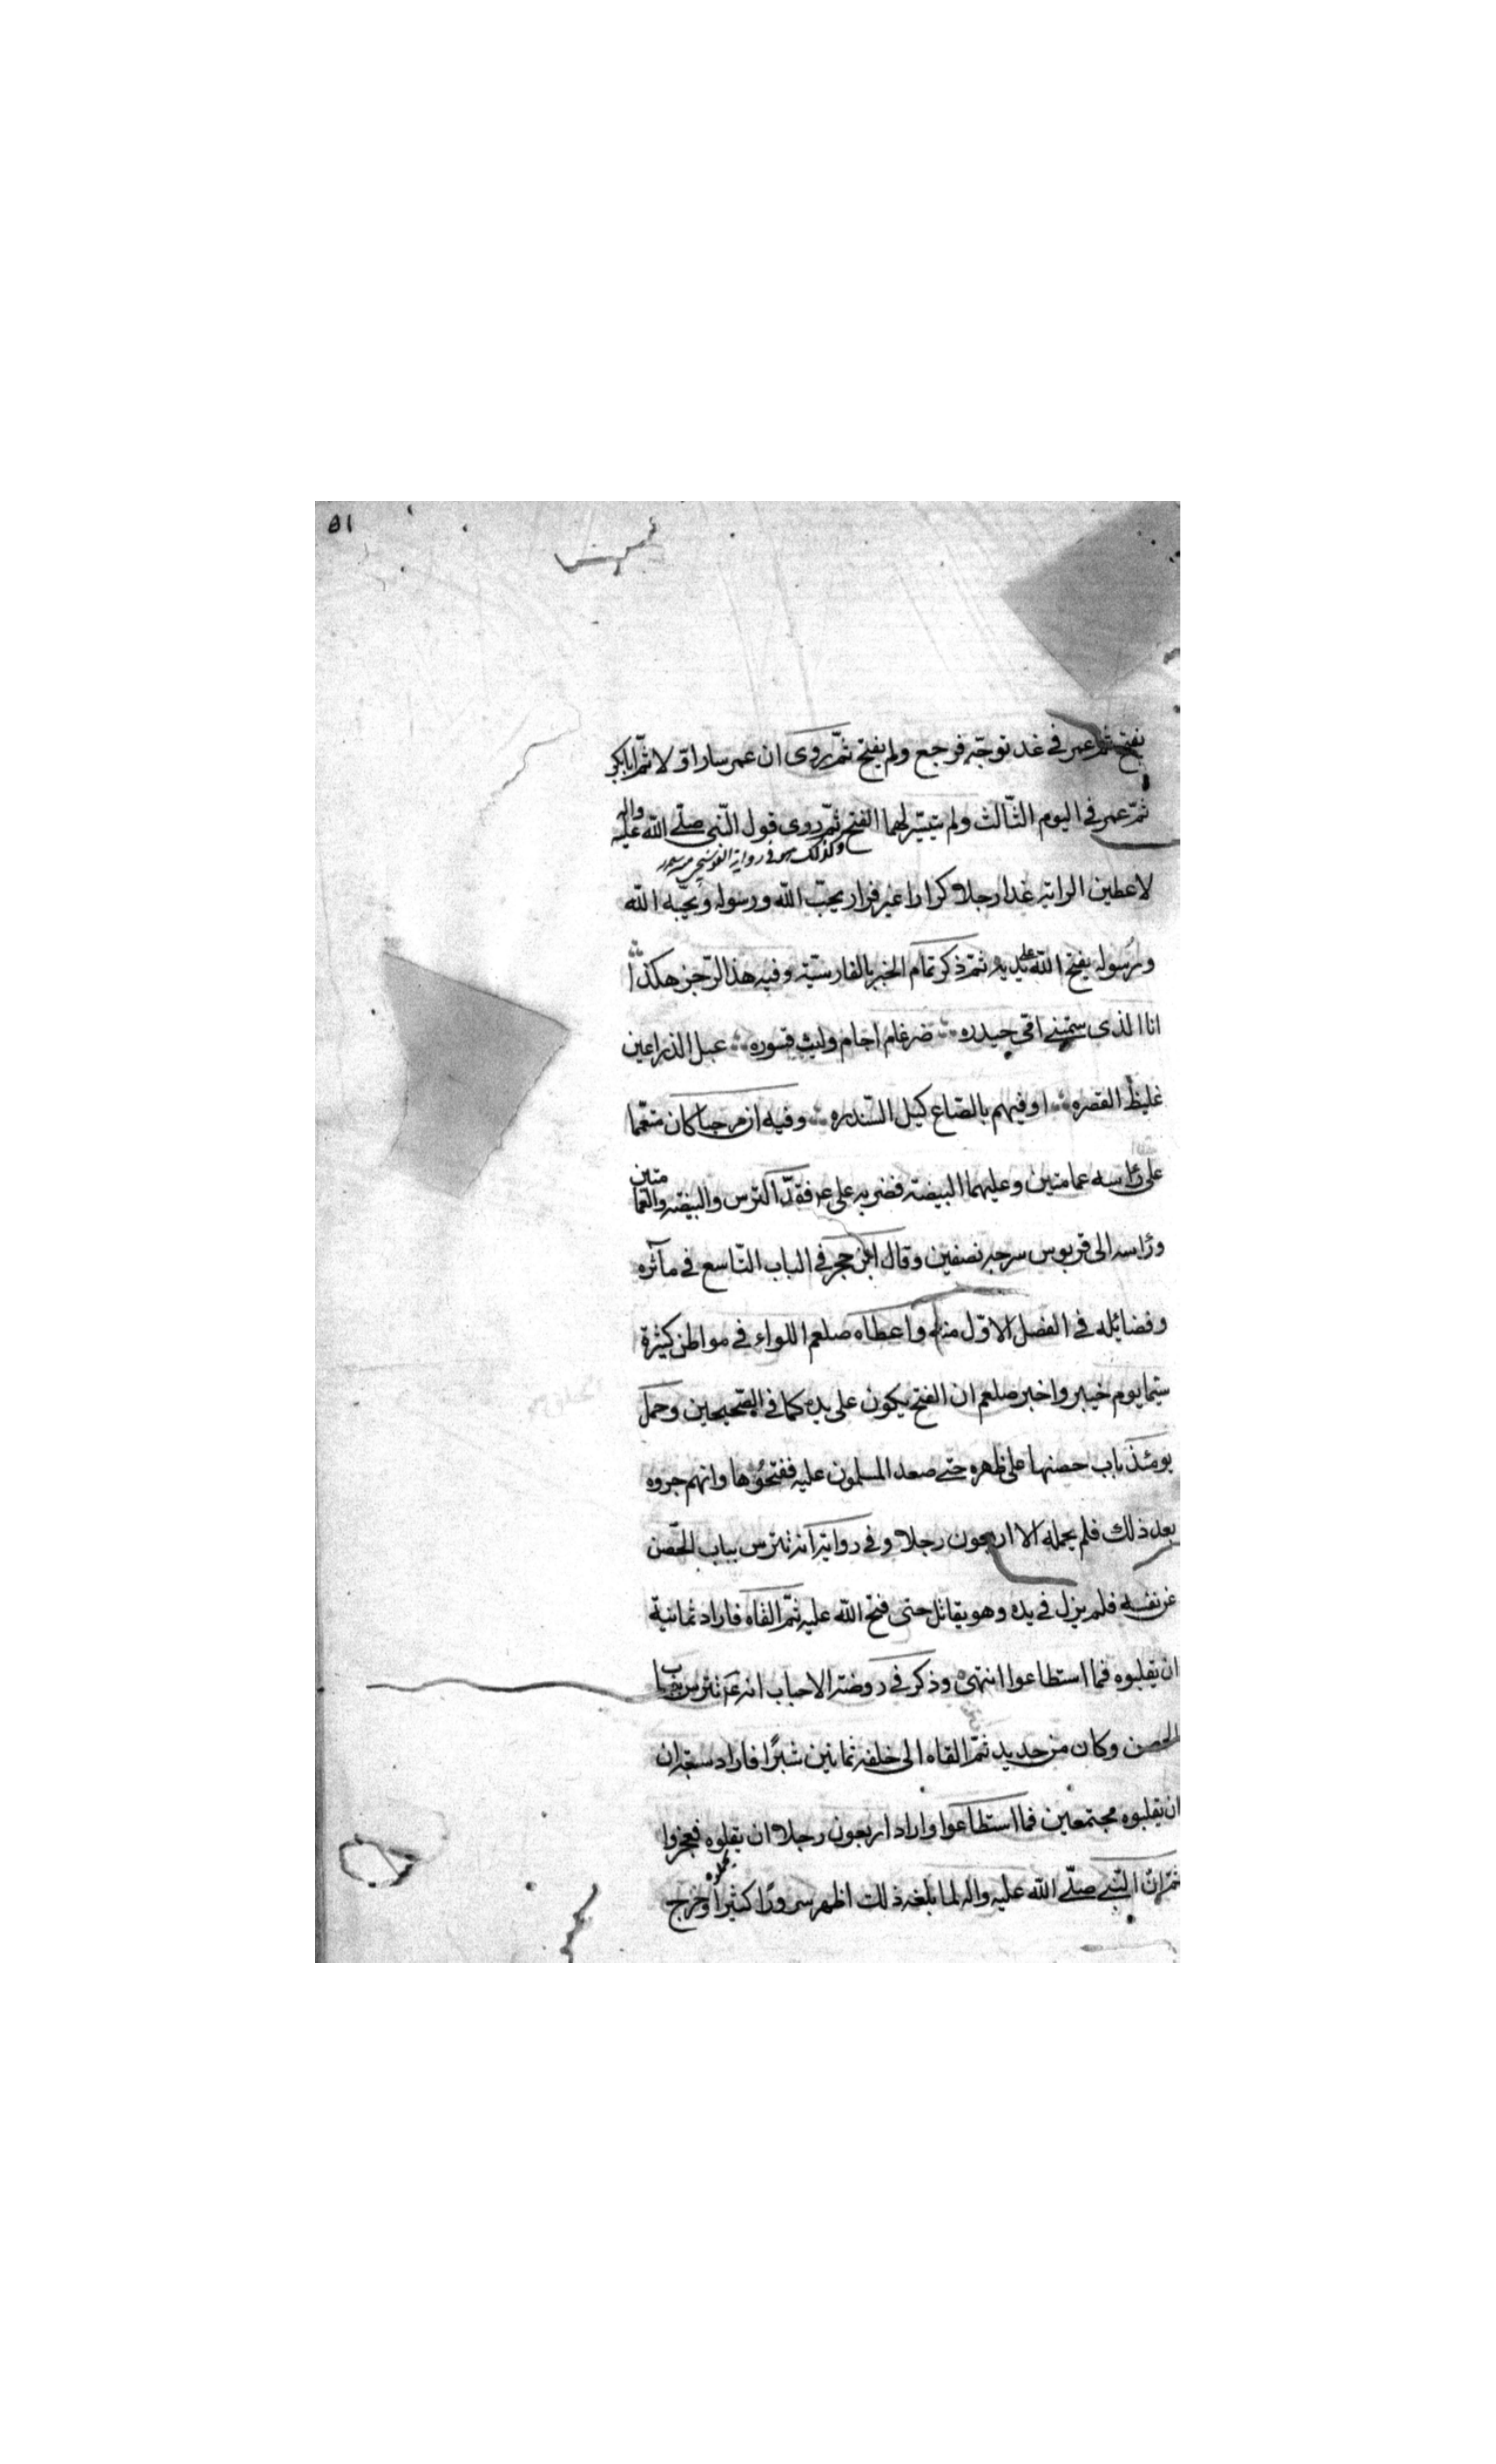 81
يفتح ثم عمر في غد توجّه فرجع ولم يفتح ثمّ روى ان عمر سار اوّلا ثمّ ابابكر
ثمّ عمر في اليوم الثّالث ولم يتيسّر لهما الفتح ثمّ روى قول النّبي صلّى الله عليه واله
وكذلك هو في رواية
لاعطين الراية غدا رجلا كرارا غير فرار يحبّ الله ورسوله ويحبّه الله
ورسوله يفتح الله على يديه ثمّ ذكر تمام الخبر بالفارسيّة وفيه هذا الرّجز هكذا
انا الذى سمّتنى امّى حيدره ضرغام اجام وليث قسوره عبل الذراعين
غليظ القصره اوفيهم بالصّاع كيل السّندره وفيه ان مرحبا كان متعمّا
على رأسه عمامتين وعليهما البيضة فضربه على ع فقدّ الترس والبيضة والعمامتين
ورأسه الى قربوس سرجه نصفين وقال ابن حجر في الباب التّاسع في مآثره
وفضايله في الفصل الاوّل منه واعطاه صلعم اللواء في مواطن كثيرة
سيّما يوم خيبر واخبر صلعم ان الفتح يكون على يده كما في الصّحيحين وحمل
يومئذ باب حصنها على ظهره حتى صعد المسلمون عليه ففتحوها وانهم جروه
بعد ذلك فلم يحمله الا اربعون رجلا وفي رواية انه تترس بباب الحّصن
عن نفسه فلم يزل في يده وهو يقاتل حتى فتح الله عليه ثمّ القاه فاراد ثمانية
ان يقلبوه فما استطاعوا انتهى وذكر في روضة الاحباب انه ع تترس بباب
الحصن وكان من حديد ثمّ القاه الى خلفه ثمانين شبرًا فاراد سبعة ان
ان يقلبوه مجتمعين فما استطاعوا واراد اربعون رجلا ان يقلوه فعجزوا
ثمّ انّ النّبى صلّى الله عليه واله لما بلغه ذلك اظهر سرورًا كثيرا وخرج